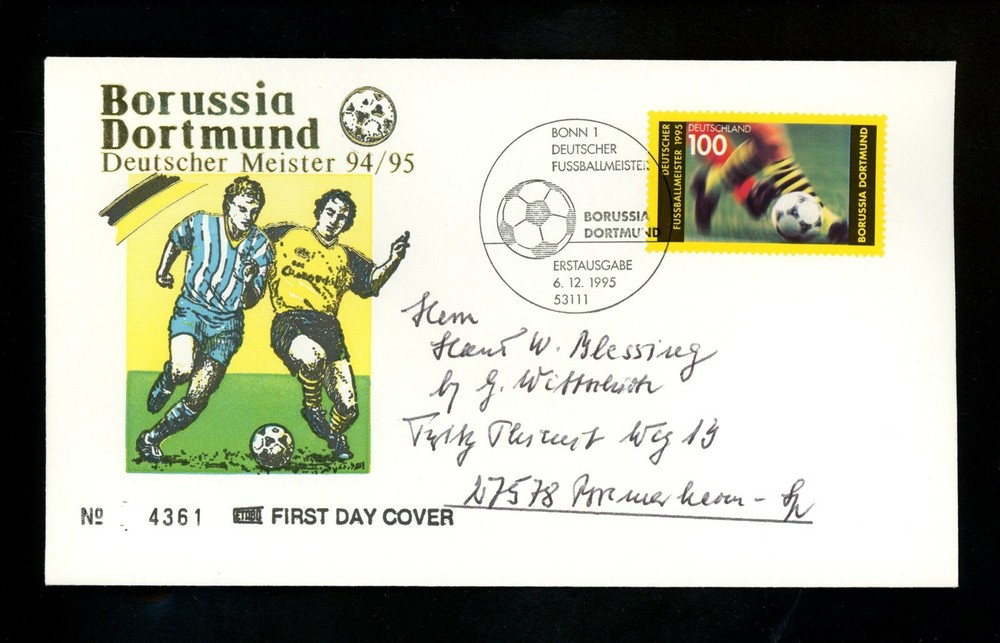 Borussia
Dortmund
Deutscher Meister 94/95
BONN 1
DEUTSCHER
FUSSBALLMEISTER
BORUSSIA
DORTMUND
ERSTAUSGABE
6. 12. 1995
53111
DEUTSCHER
FUSSBALLMEISTER 1995
DEUTSCHLAND
100
BORUSSIA DORTMUND
Herrn
Hans W. Blessing
by G.
Weg 13
27578 Bremerhaven - Sp
Nº 4361 ETBBC FIRST DAY COVER